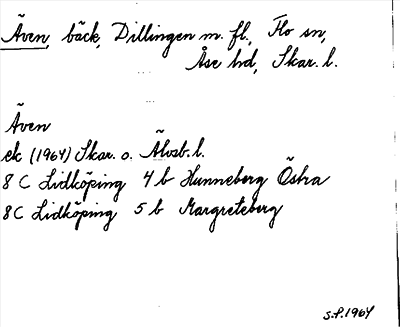 Även, bäck, Dillingen m. fl., Flo sn,
Åse hd, Skar. l.
Även
ek (1964) Skar. o. Älvsb. l.
8 C Lidköping 4 b Hunneberg Östra
8C Lidköping 5 b Margreteberg
S.P. 1964